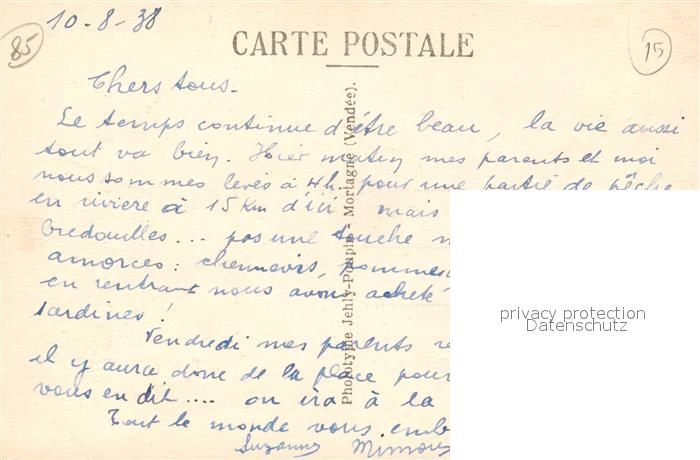 10-8-38
85
CARTE POSTALE
15
Chers tous.
Le temps continue d'être beau, la vie aussi
tout va bien. Hier matin mes parents et moi
nous sommes levés à 4h. pour une partie de pêche
en rivière à 15 Km d'ici mais
bredouilles... pas une touche
amorces: chennevis, pommes
en rentrant nous avons acheté
sardines!
Vendredi mes parents re
il y aura donc de la place pour
vous en dit.... on ira à la
Tout le monde vous emb
Suzanne
Phototypie Jehly-Poupin, Mortagne (Vendée).
privacy protection
Datenschutz